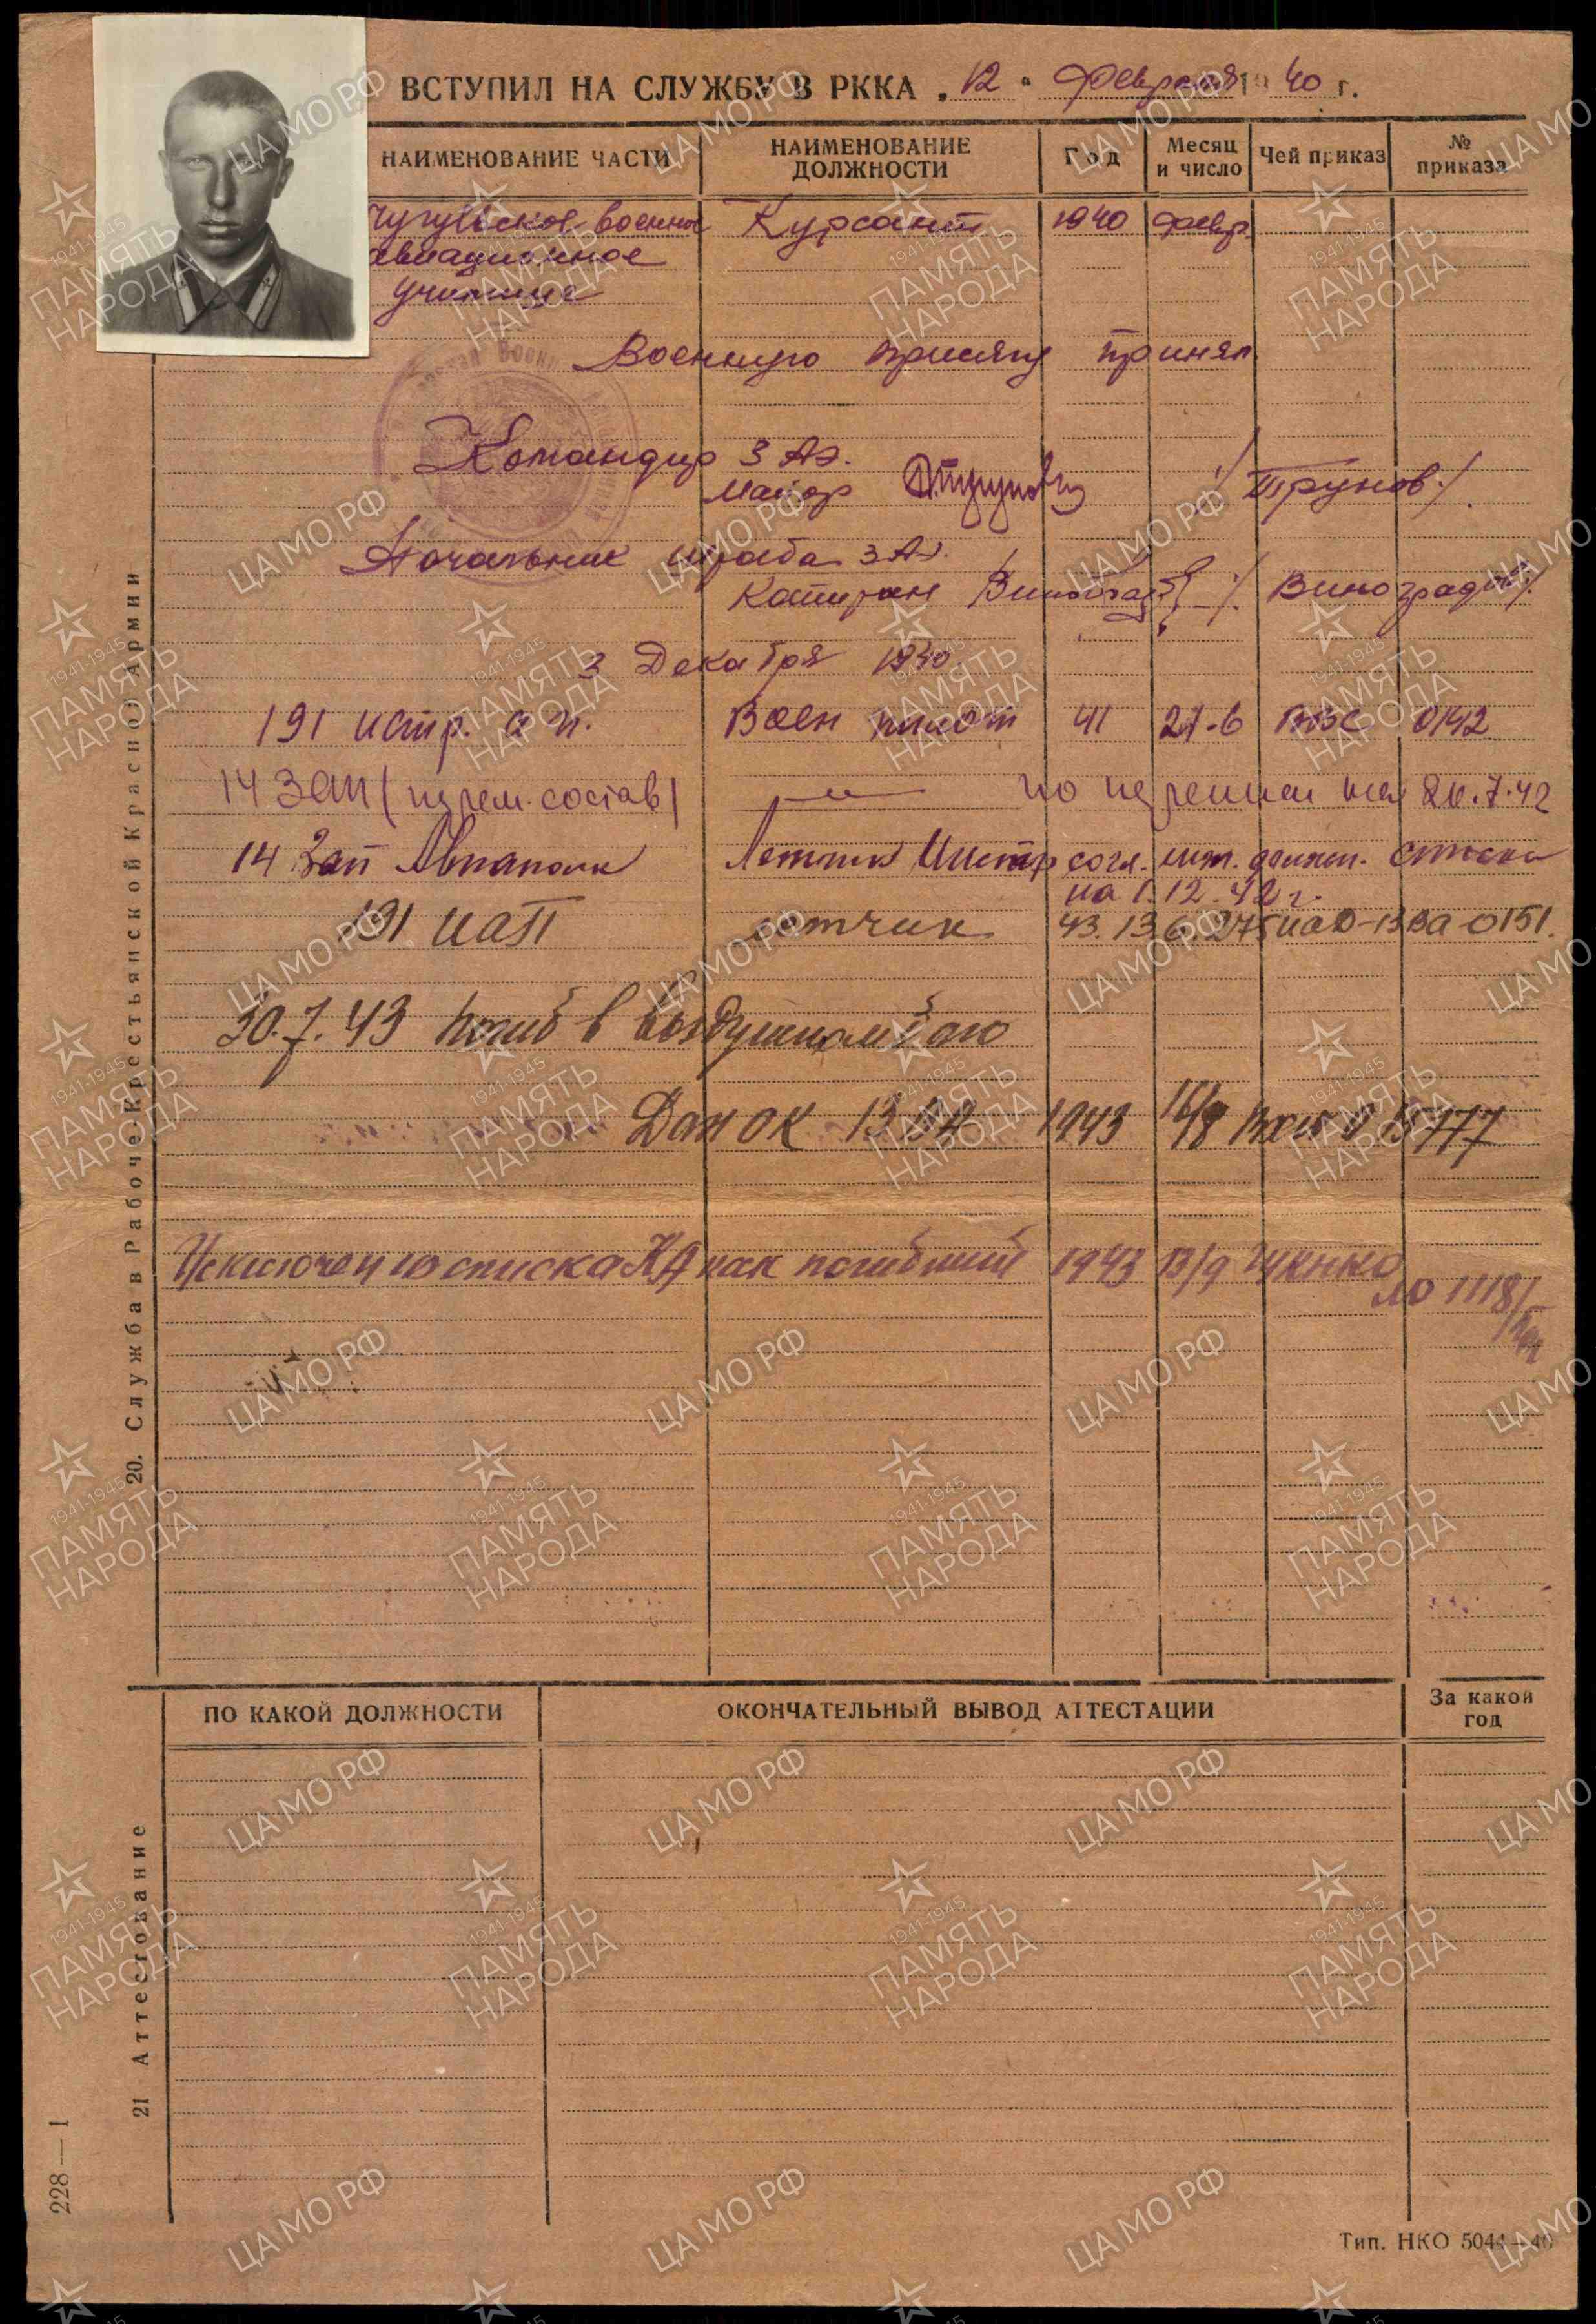 ВСТУПИЛ НА СЛУЖБУ В РККА „12“ февраля 1940 г.
НАИМЕНОВАНИЕ ЧАСТИ НАИМЕНОВАНИЕ ДОЛЖНОСТИ Год Месяц и число Чей приказ № приказа
Чугуевское военное Курсант 1940 февр.
авиационное
училище
Военную присягу принял
Командир 3 АЭ.
Майор /Трунов/
Начальник штаба 3 АЭ.
Капитан /Виноградов/
3 Декабря 1940
191 истр. а п. Воен пилот 41 21.6 ВВС 0142
14 ЗАП (перем. состав) —"— по 26.7.42
14 Зап Авиаполк Летчик Инстр согл. должн. списка
на 1.12.42 г.
191 ИАП летчик 43. 13.6. 275 иад-13 ВА 0151.
30.7.43 погиб в воздушном бою
Дон ОК 13 ВА 1943 16/8 15777
Исключен из списка КА как погибший 1943 13/9 ГУК НКО
№ 1118/
20. Служба в Рабоче-Крестьянской Красной Армии
ПО КАКОЙ ДОЛЖНОСТИ ОКОНЧАТЕЛЬНЫЙ ВЫВОД АТТЕСТАЦИИ За какой год
21 Аттестование
228—1
Тип. НКО 5044—40
ЦА МО РФ
1941-1945
ПАМЯТЬ
НАРОДА